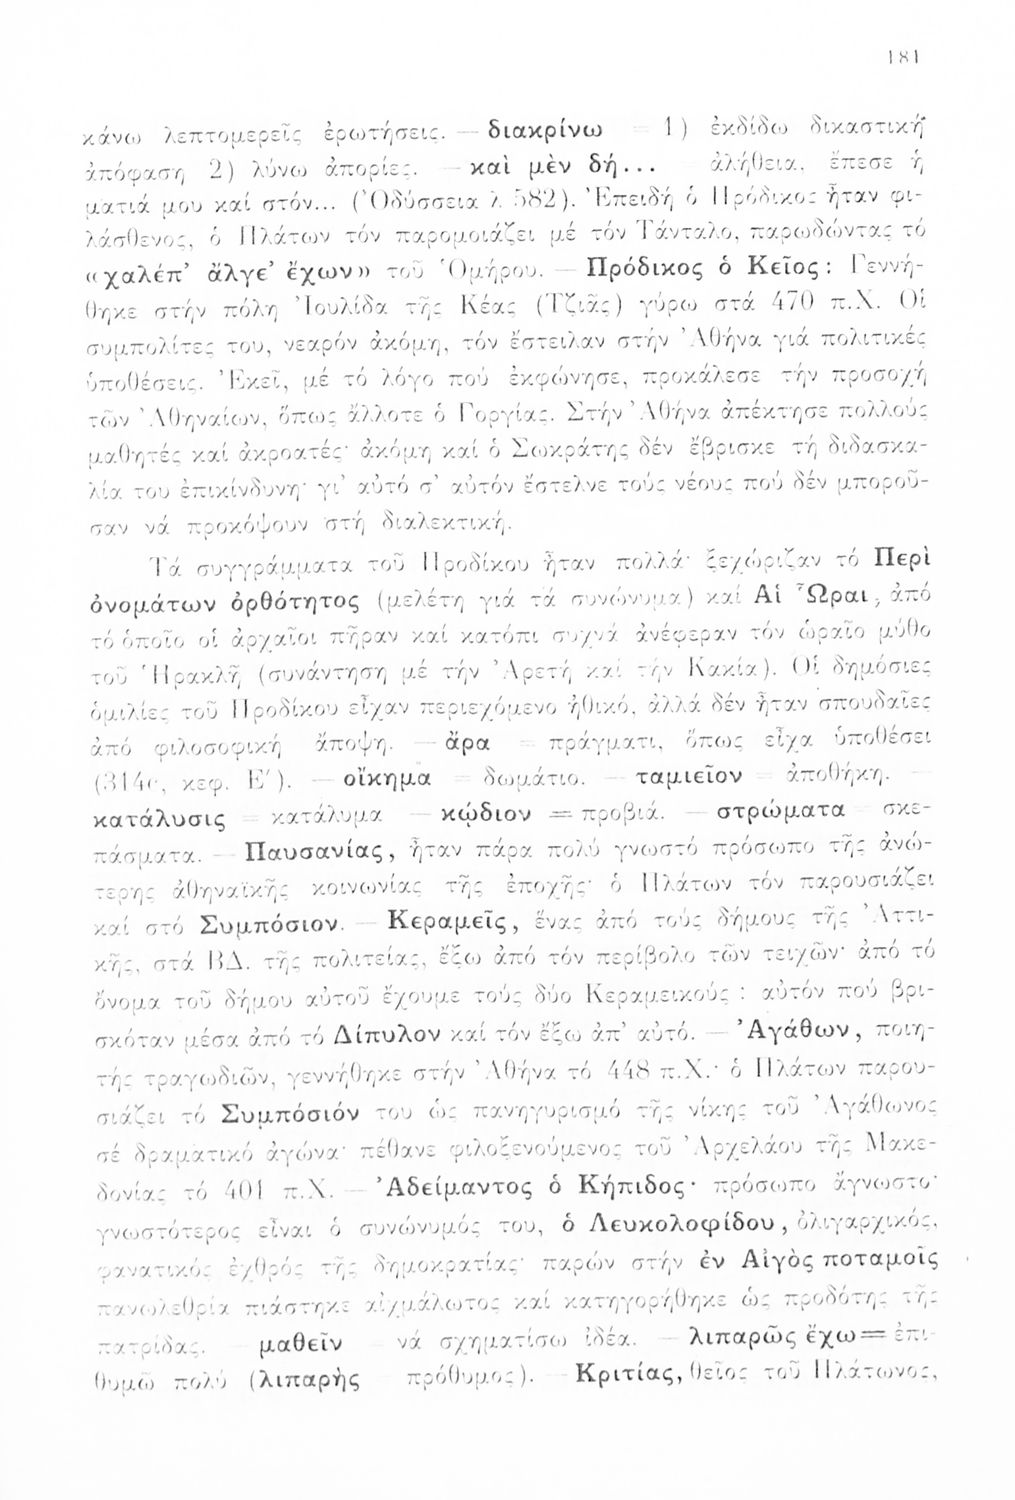 181
κάνω λεπτομερεῖς ἐρωτήσεις. — διακρίνω = 1) ἐκδίδω δικαστική
ἀπόφαση 2) λύνω ἀπορίες. — καὶ μὲν δή... = ἀλήθεια, ἔπεσε ἡ
ματιά μου καί στόν... (Ὀδύσσεια λ 582). Ἐπειδή ὁ Πρόδικος ἦταν φι-
λάσθενος, ὁ Πλάτων τόν παρομοιάζει μέ τόν Τάνταλο, παρωδώντας τό
«χαλέπ’ ἄλγε’ ἔχων» τοῦ Ὁμήρου. — Πρόδικος ὁ Κεῖος: Γεννή-
θηκε στήν πόλη Ἰουλίδα τῆς Κέας (Τζιᾶς) γύρω στά 470 π.Χ. Οἱ
συμπολίτες του, νεαρόν ἀκόμη, τόν ἔστειλαν στήν Ἀθήνα γιά πολιτικές
ὑποθέσεις. Ἐκεῖ, μέ τό λόγο πού ἐκφώνησε, προκάλεσε τήν προσοχή
τῶν Ἀθηναίων, ὅπως ἄλλοτε ὁ Γοργίας. Στήν Ἀθήνα ἀπέκτησε πολλούς
μαθητές καί ἀκροατές· ἀκόμη καί ὁ Σωκράτης δέν ἔβρισκε τή διδασκα-
λία του ἐπικίνδυνη· γι’ αὐτό σ’ αὐτόν ἔστελνε τούς νέους πού δέν μποροῦ-
σαν νά προκόψουν στή διαλεκτική.
Τά συγγράμματα τοῦ Προδίκου ἦταν πολλά· ξεχώριζαν τό Περὶ
ὀνομάτων ὀρθότητος (μελέτη γιά τά συνώνυμα) καί Αἱ Ὧραι, ἀπό
τό ὁποῖο οἱ ἀρχαῖοι πῆραν καί κατόπι συχνά ἀνέφεραν τόν ὡραῖο μύθο
τοῦ Ἡρακλῆ (συνάντηση μέ τήν Ἀρετή καί τήν Κακία). Οἱ δημόσιες
ὁμιλίες τοῦ Προδίκου εἶχαν περιεχόμενο ἠθικό, ἀλλά δέν ἦταν σπουδαῖες
ἀπό φιλοσοφική ἄποψη. — ἄρα = πράγματι, ὅπως εἶχα ὑποθέσει
(314c, κεφ. Ε΄). — οἴκημα = δωμάτιο. — ταμιεῖον = ἀποθήκη. —
κατάλυσις = κατάλυμα — κῴδιον = προβιά. — στρώματα = σκε-
πάσματα. — Παυσανίας, ἦταν πάρα πολύ γνωστό πρόσωπο τῆς ἀνώ-
τερης ἀθηναϊκῆς κοινωνίας τῆς ἐποχῆς· ὁ Πλάτων τόν παρουσιάζει
καί στό Συμπόσιον. — Κεραμεῖς, ἕνας ἀπό τούς δήμους τῆς Ἀττι-
κῆς, στά ΒΔ. τῆς πολιτείας, ἔξω ἀπό τόν περίβολο τῶν τειχῶν· ἀπό τό
ὄνομα τοῦ δήμου αὐτοῦ ἔχουμε τούς δύο Κεραμεικούς : αὐτόν πού βρι-
σκόταν μέσα ἀπό τό Δίπυλον καί τόν ἔξω ἀπ’ αὐτό. — Ἀγάθων, ποιη-
τής τραγωδιῶν, γεννήθηκε στήν Ἀθήνα τό 448 π.Χ.· ὁ Πλάτων παρου-
σιάζει τό Συμπόσιόν του ὡς πανηγυρισμό τῆς νίκης τοῦ Ἀγάθωνος
σέ δραματικό ἀγώνα· πέθανε φιλοξενούμενος τοῦ Ἀρχελάου τῆς Μακε-
δονίας τό 401 π.Χ. — Ἀδείμαντος ὁ Κήπιδος· πρόσωπο ἄγνωστο·
γνωστότερος εἶναι ὁ συνώνυμός του, ὁ Λευκολοφίδου, ὀλιγαρχικός,
φανατικός ἐχθρός τῆς δημοκρατίας· παρών στήν ἐν Αἰγὸς ποταμοῖς
πανωλεθρία πιάστηκε αἰχμάλωτος καί κατηγορήθηκε ὡς προδότης τῆς
πατρίδας. — μαθεῖν = νά σχηματίσω ἰδέα. — λιπαρῶς ἔχω = ἐπι-
θυμῶ πολύ (λιπαρὴς = πρόθυμος). — Κριτίας, θεῖος τοῦ Πλάτωνος,